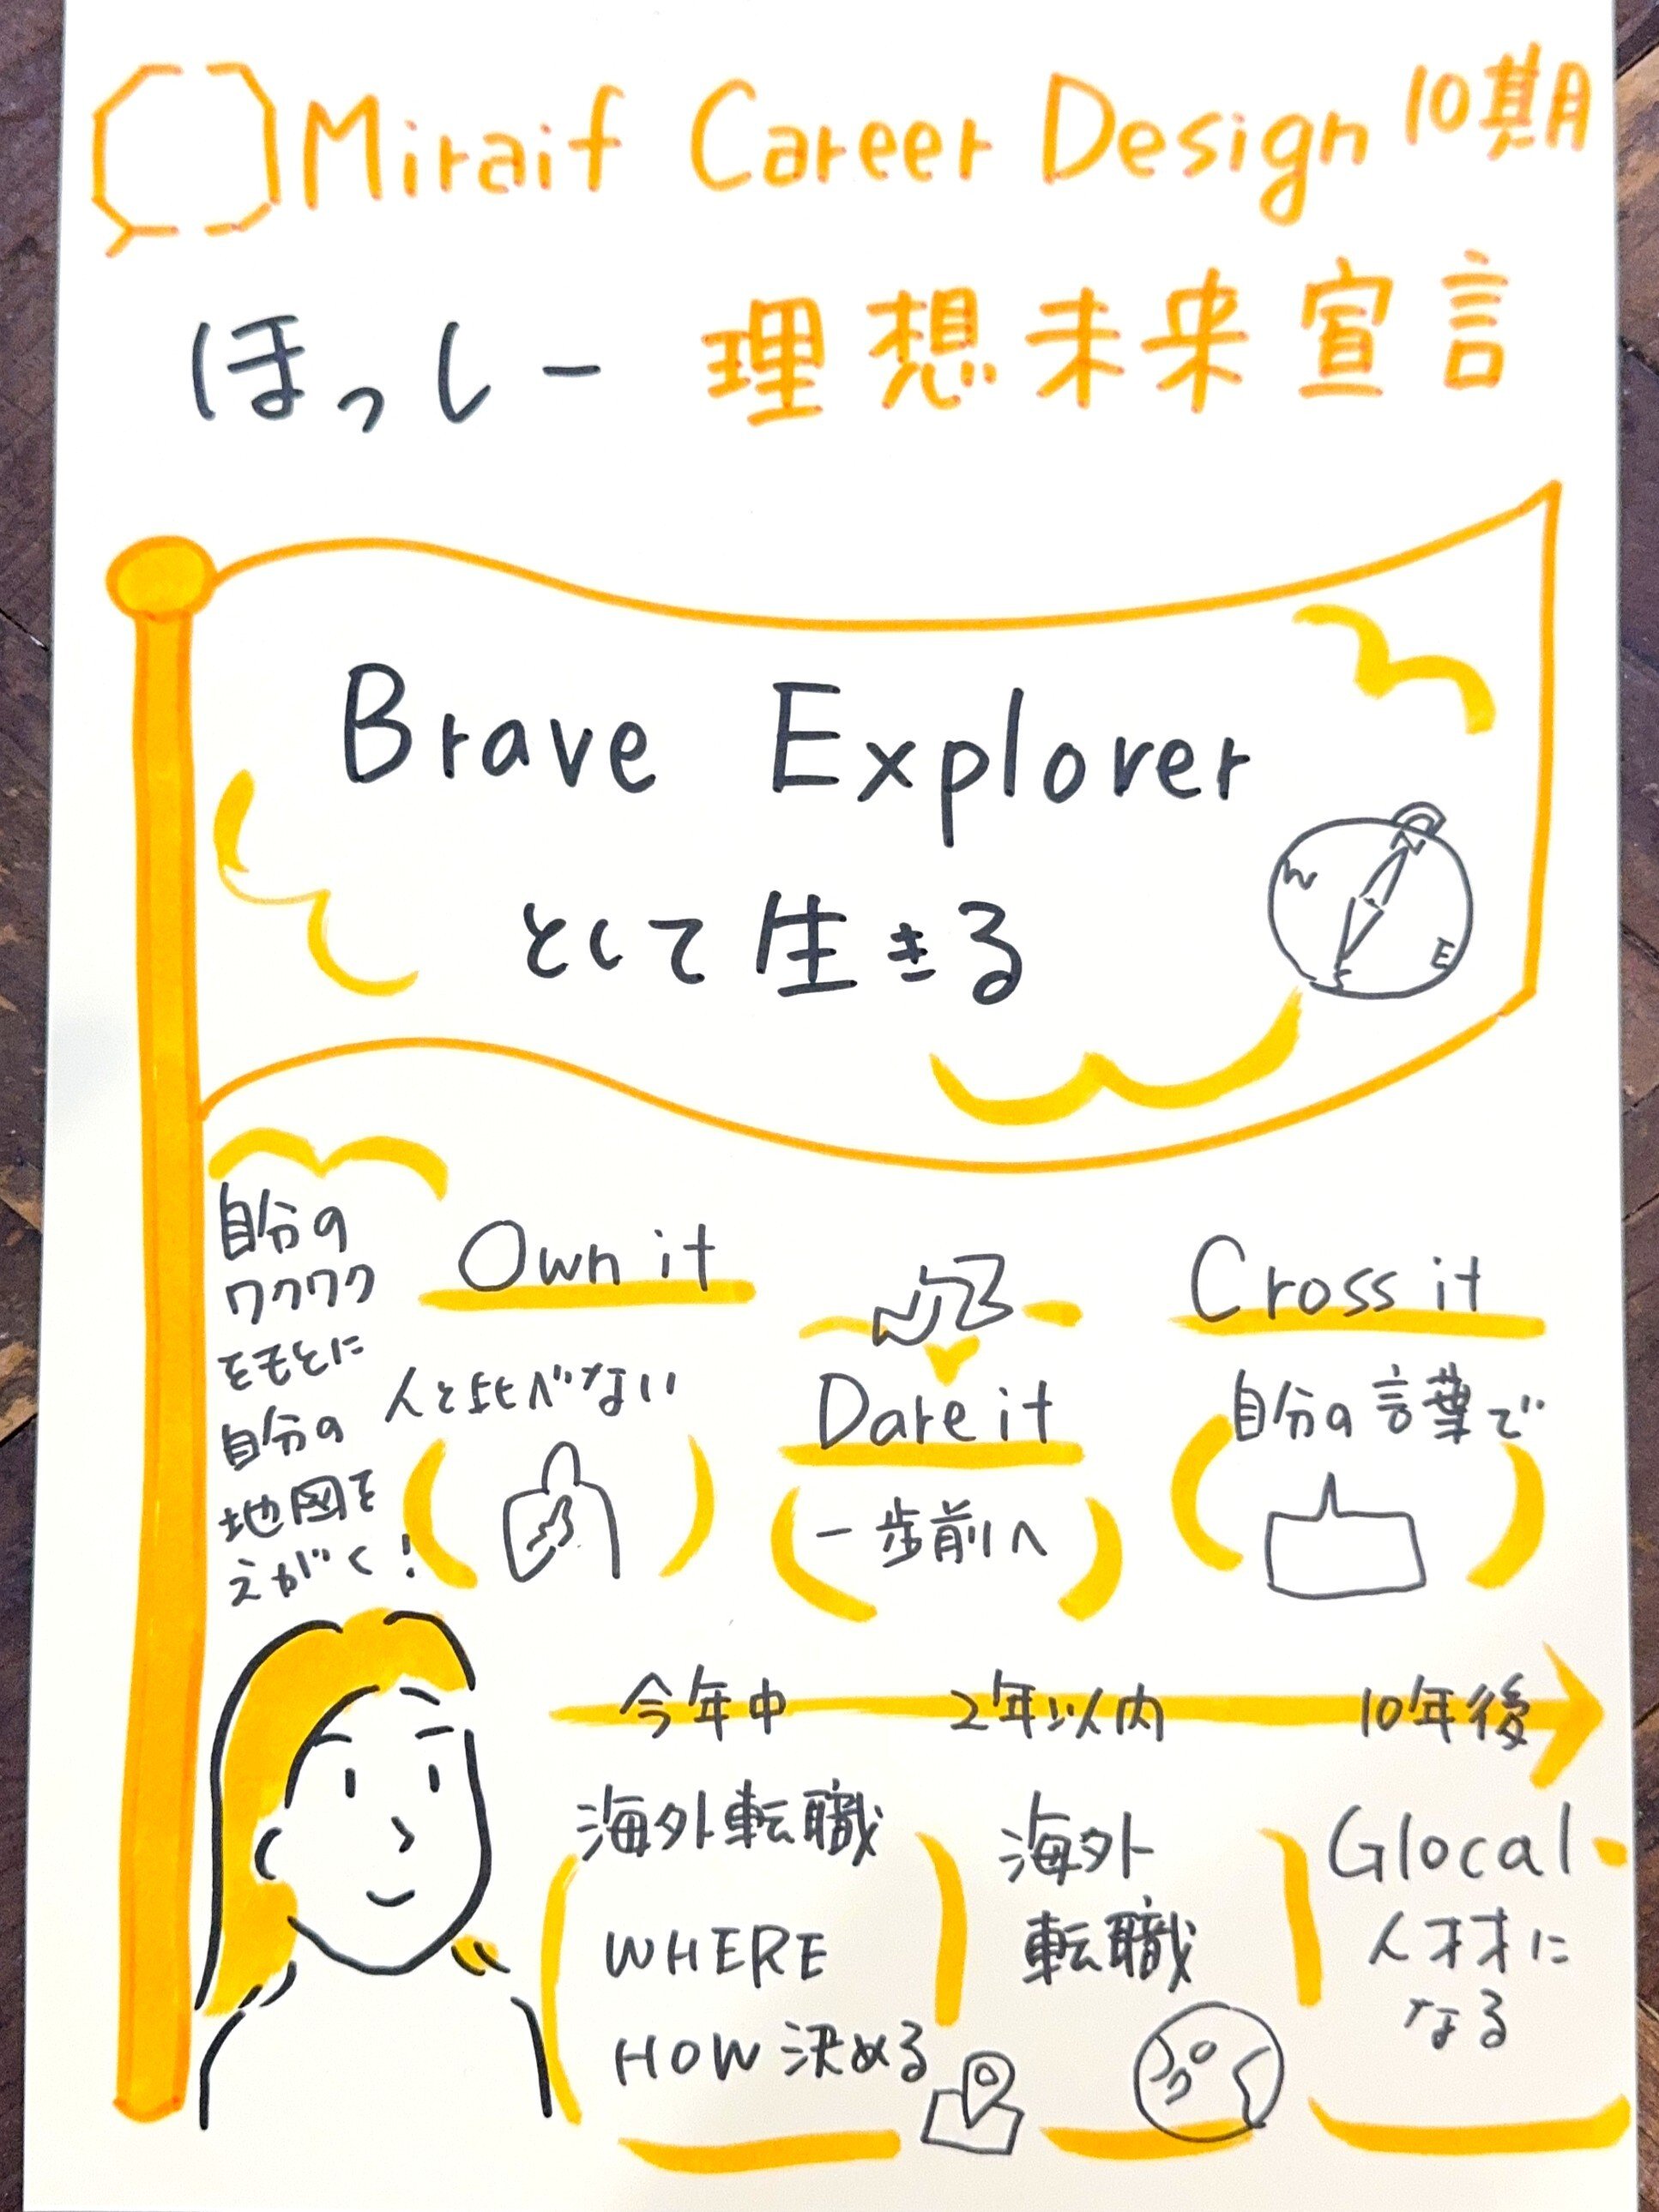 Miraif Career Design 10期
ほっしー 理想未来宣言
Brave Explorer
として生きる
N
W
E
S
自分の
ワクワク
をもとに
自分の
地図を
えがく!
Own it
人と比べない
Dare it
一歩前へ
Cross it
自分の言葉で
今年中
2年以内
10年後
海外転職
WHERE
HOW 決める
海外
転職
Glocal
人才才に
なる